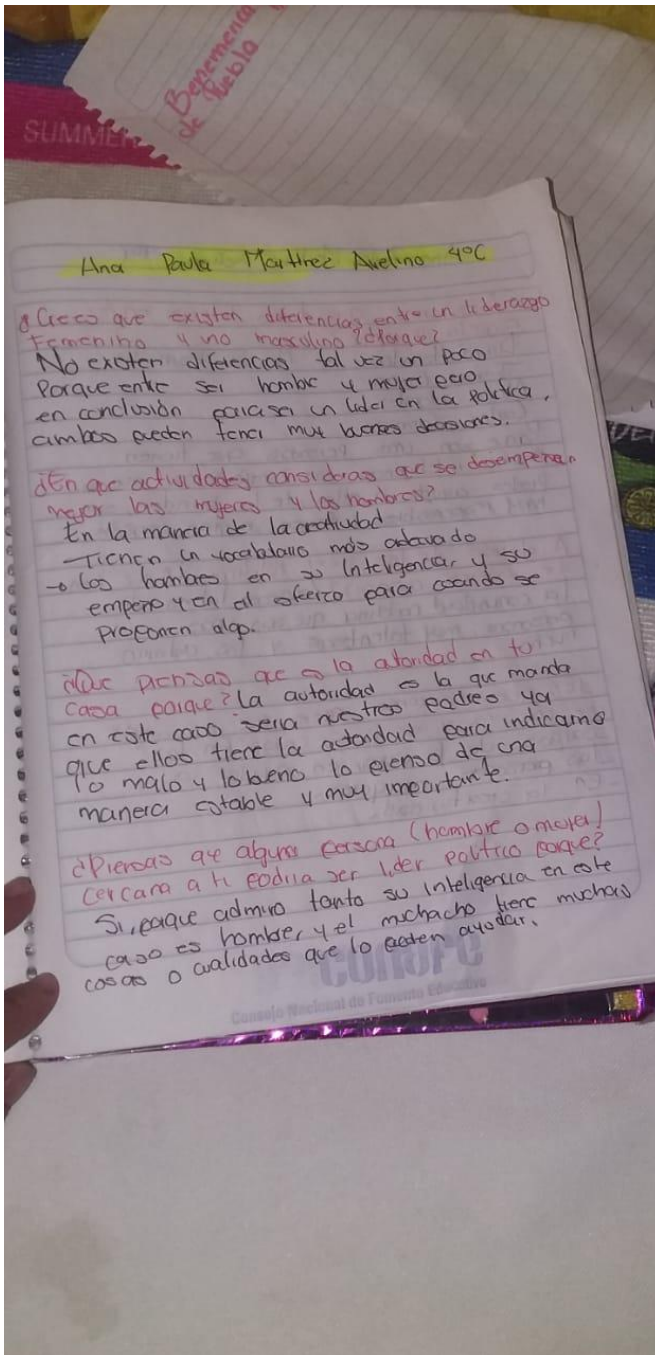 Benemerita
de Puebla
SUMMER
Ana Paula Martinez Avelino 4°C
¿Crees que existen diferencias entre un liderazgo
femenino y uno masculino? ¿Porque?
No existen diferencias tal vez un poco
Porque entre ser hombre y mujer pero
en conclusión para ser un lider en la politica,
ambos pueden tener muy buenas decisiones.
¿En que actividades consideras que se desempeñan
mejor las mujeres y los hombres?
En la manera de la creatividad
Tienen un vocabulario más adecuado
→ Los hombres en su Inteligencia, y su
empeño y en el esfuerzo para cuando se
proponen algo.
¿Que piensas que es la autoridad en tu
casa porque? La autoridad es la que manda
en este caso seria nuestros padres ya
que ellos tiene la autoridad para indicarno
lo malo y lo bueno lo pienso de una
manera estable y muy importante.
¿Piensas que alguna persona (hombre o mujer)
cercana a ti podria ser lider politico porque?
Si, porque admiro tanto su inteligencia en este
caso es hombre, y el muchacho tiene muchas
cosas o cualidades que lo pueden ayudar.
conafe
Consejo Nacional de Fomento Educativo